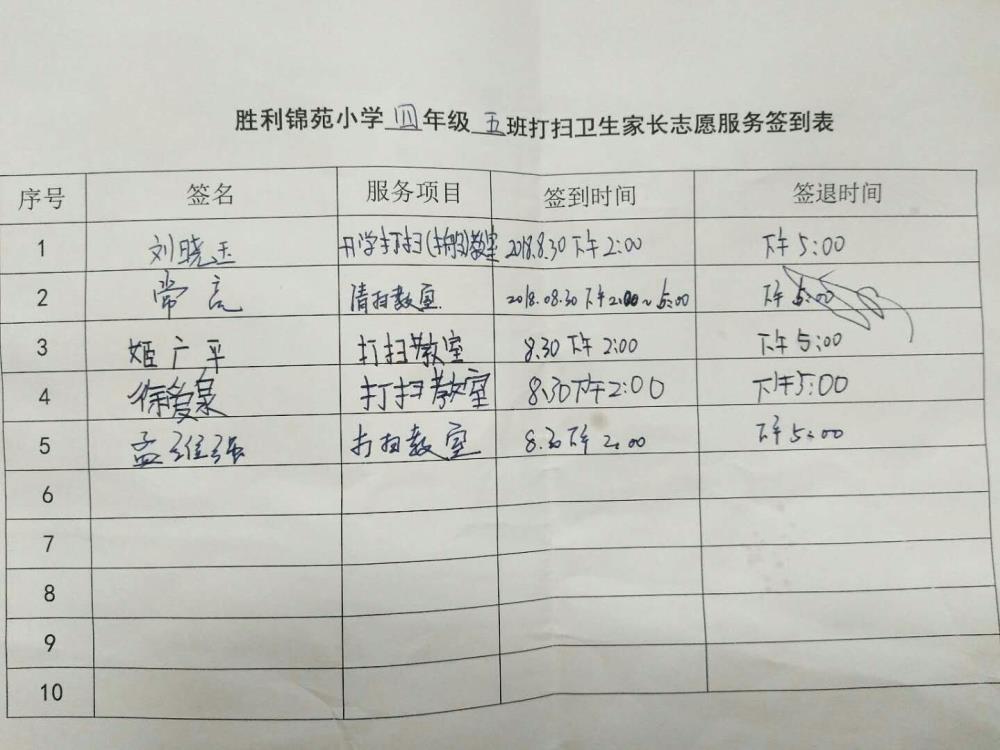 胜利锦苑小学四年级五班打扫卫生家长志愿服务签到表
序号 签名 服务项目 签到时间 签退时间
1 刘晓玉 开学打扫(搬)教室 2018.8.30 下午2:00 下午5:00
2 常亮 清扫教室 2018.08.30 下午2:00~5:00 下午5:00
3 姬广平 打扫教室 8.30 下午 2:00 下午5:00
4 徐爱泉 打扫教室 8.30下午2:00 下午5:00
5 孟维强 打扫教室 8.30下午 2:00 下午5:00
6
7
8
9
10